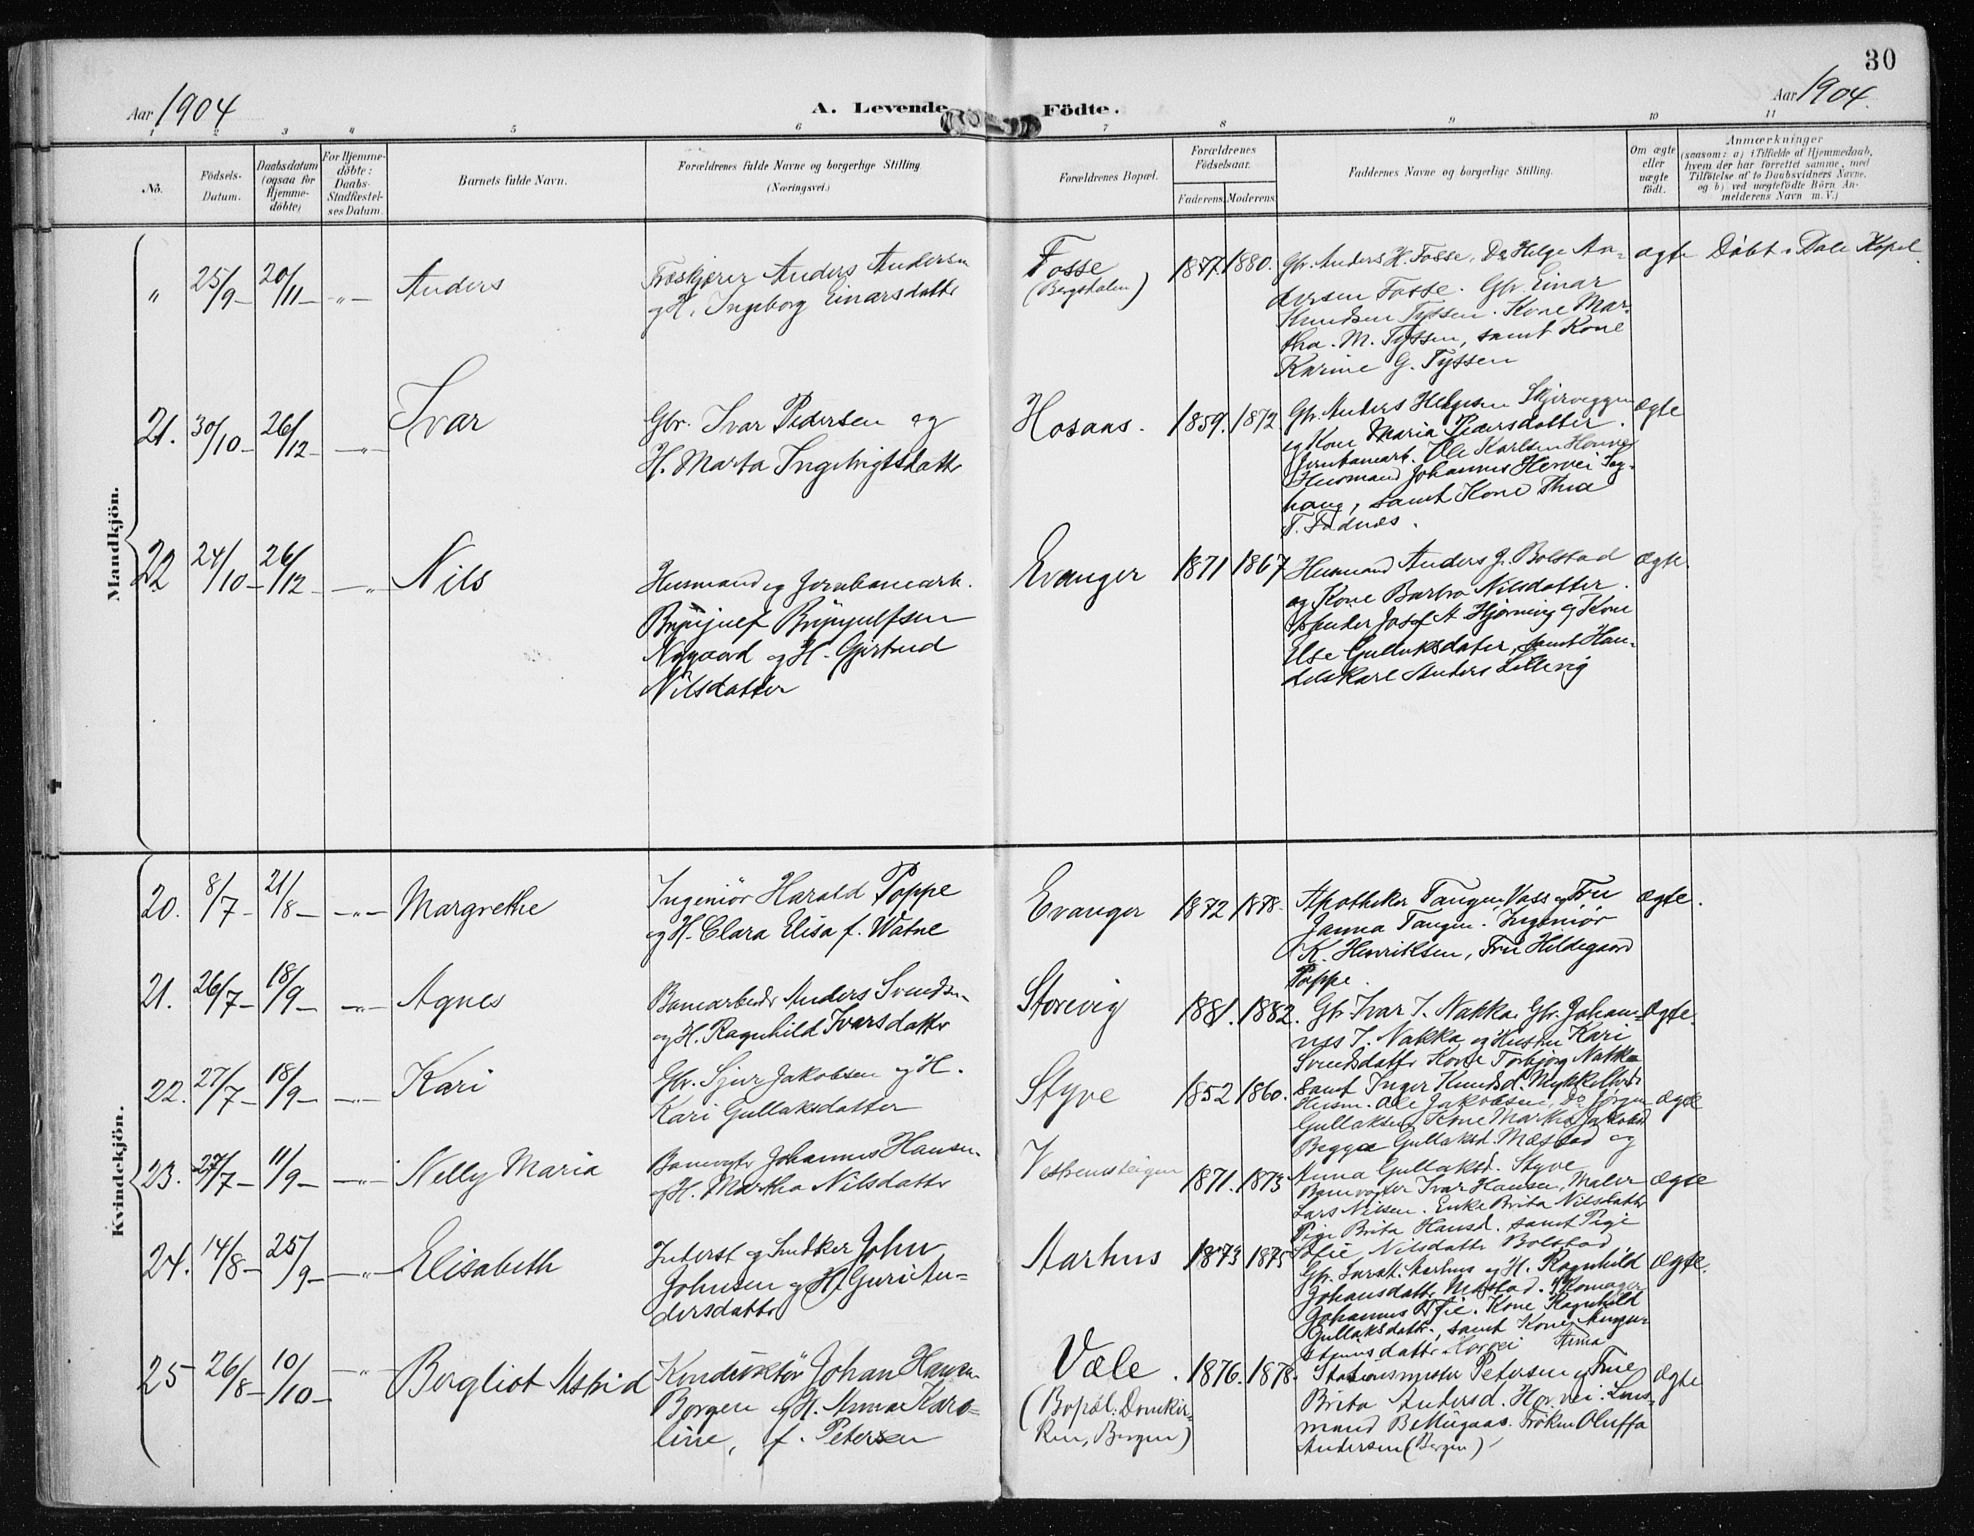 30
Aar 1904
A. Levende Födte.
Aar 1904.
1 2 3 4 5 6 7 8 9 10 11
No.
Födsels-
Datum.
Daabsdatum
(ogsaa for
Hjemme-
döbte)
For Hjemme-
döbte:
Daabs-
Stadfæstel-
ses Datum.
Barnets fulde Navn.
Forældrenes fulde Navne og borgerlige Stilling
(Næringsvei.)
Forældrenes Bopæl.
Forældrenes
Födselsaar.
Faderens. Moderens.
Faddernes Navne og borgerlige Stilling.
Om ægte
eller
uægte
födt.
Anmærkninger
(saasom: a) i Tilfælde af Hjemmedaab,
hvem der har forrettet samme, med
Tilföielse af to Daabsvidners Navne,
og b) ved uægtefödte Börn An-
melderens Navn m. V.)
Mandkjön.
" 25/9 – 20/11 – – " – Anders
Anders Andersen
og H. Ingeborg Einarsdatter
Fosse
(Bergsdalen)
1877. 1880.
Gbr. Anders H. Fosse, Do Helge An-
dersen Fosse. Gbr. Einar
Knudsen Tyssen. Kone Mar-
tha. M. Tyssen, samt Kone
Karine G. Tyssen
ægte
Döbt i Dale Kapel.
21. 30/10 – 26/12 – – " – Ivar
Gbr. Ivar Pedersen og
H. Marta Ingebrigtsdatter
Hosaas.
1859. 1872
Gbr. Anders Helgesen
og Kone Maria Pedersdatter.
Jernbanearb. Ole Karlsen
Husmand Johannes Horvei
samt Kone Thea
T. Fadnes.
ægte
22 24/10 – 26/12 – – " – Nils
Husmand og Jernbanearb.
Brynjulf Brynjulfsen
Nygaard og H. Gjertrud
Nilsdatter
Evanger
1871 1867
Husmand Anders J. Bolstad
og Kone Barbro Nilsdatter.
Josef A Hjörnevig og Kone
Else Gullaksdatter, samt Han-
delskarl Anders Lillevig
ægte.
Kvindekjön.
20. 8/7 – 21/8 – – " – Margrethe
Ingeniör Harald Poppe
og H. Clara Elisa f. Watne
Evanger
1872 1878.
Apotheker Tangen Voss og Fru
Janna Tangen. Ingeniör
K. Henriksen, Fru Hildegaard
Poppe.
ægte.
21. 26/7 – 18/9 – – " – Agnes
Banearbeider Anders Svendsen
og H. Ragnhild Ivarsdatter
Storevig
1881. 1882.
Gbr Ivar I. Nakka. Gbr. Johan-
nes I. Nakka og Hustru Kari
Svendsdatter Kone Torbjörg Nakka
samt Inger Knudsd. Mykkeltved
ægte.
22. 27/7 – 18/9 – – " – Kari
Gbr. Sjur Jakobsen og H.
Kari Gullaksdatter
Styve
1852 1860.
Husm. Ole Jakobsen, Do Jörgen
Gullaksen, Kone Martha Jakobsd
Begga Gullaksd. Mæstad og
Anna Gullaksd. Styve
ægte
23. 27/7 – 11/9 – – " – Nelly Maria
Banevogter Johannes Hansen
og H. Martha Nilsdatter
1871. 1873
Banevogter Ivar Hansen, Maler
Lars Nilsen. Enke Brita Nilsdatter
Pige Brita Hansd. samt Pige
Sofie Nilsdatter Bolstad
ægte
24. 14/8 – 25/9 – – " – Elisabeth
Inderst og Snedker John
Johnsen og H. Guri An-
dersdatter
Aarhus
1873 1875
Gbr. Lars K. Aarhus og H. Ragnhild
Johansdatter Mæstad.
Johannes Kone Ragnhild
Gullaksdatter, samt Kone
Horvei
ægte.
25 26/8 – 10/10 – – " – Bergliot Astrid
Konduktör Johan Hansen
Borgen og H. Anna Karo-
line, f. Petersen
Væle.
(Bopæl: Domkir-
ken, Bergen)
1876. 1878.
Stationsmester Petersen og Frue
Brita Andersd. Horvei. Lens-
mand Fröken Oluffa
Andersen (Bergen)
ægte